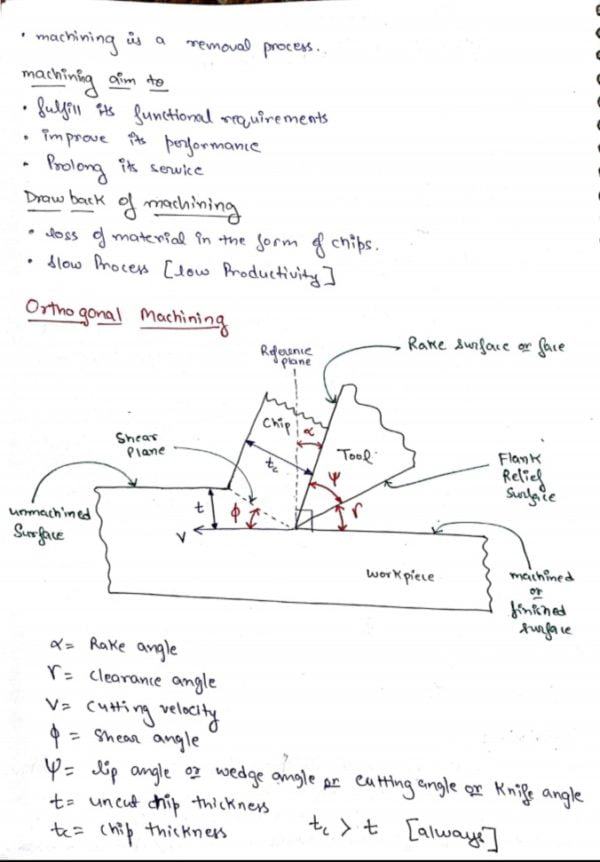 • machining is a removal process.
machining aim to
• fulfill its functional requirements
• improve its performance
• Prolong its service
Draw back of machining
• loss of material in the form of chips.
• slow Process [low Productivity]
Orthogonal Machining
Reference plane
Rake surface or face
Chip
α
Shear Plane
tc
Tool
ψ
Flank Relief Surface
unmachined Surface
t
ϕ
r
V
workpiece
machined or finished surface
α = Rake angle
r = clearance angle
V = Cutting velocity
ϕ = Shear angle
ψ = lip angle or wedge angle or cutting angle or Knife angle
t = uncut chip thickness
tc = chip thickness tc > t [always]